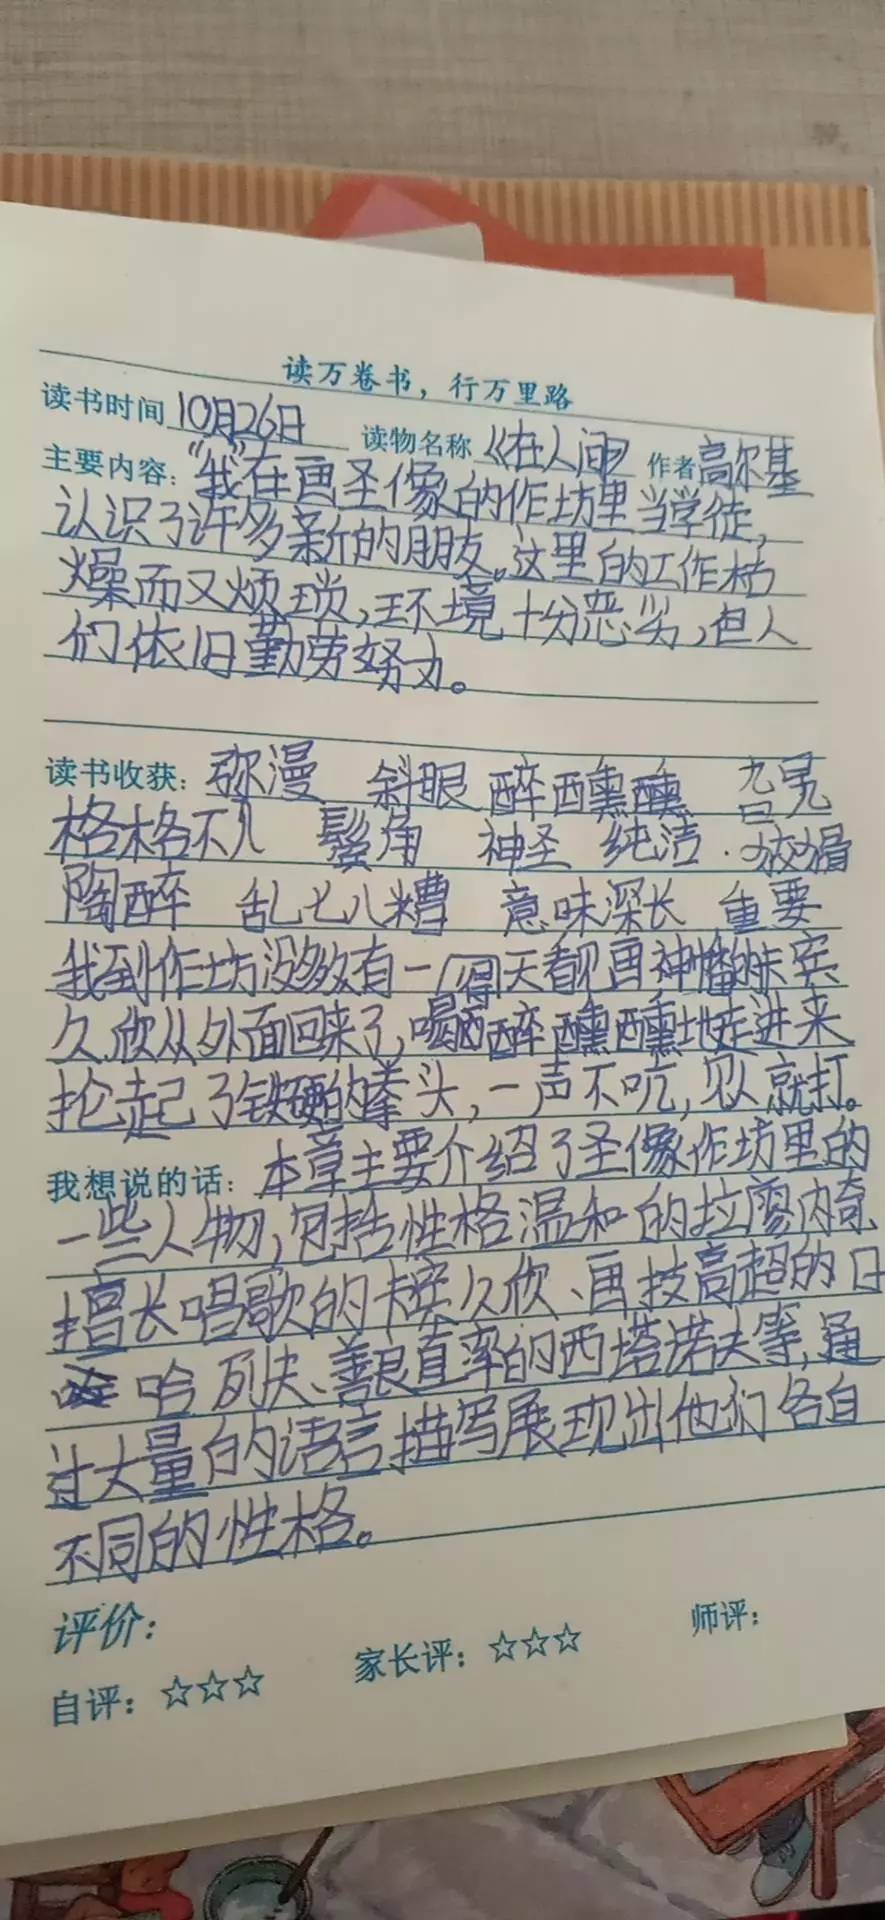 读万卷书，行万里路
读书时间 10月26日 读物名称 《在人间》 作者 高尔基
主要内容："我"在画圣像的作坊里当学徒，
认识了许多新的朋友。这里的工作枯
燥而又烦琐，环境十分恶劣，但人
们依旧勤劳努力。
读书收获：弥漫 斜眼 醉醺醺
格格不入 鬓角 神圣 纯洁
陶醉 乱七八糟 意味深长 重要
我到作坊没多久有一天看见画神幡的卡宾
久欣从外面回来了，喝醉醺醺地走进来
抡起了铁硬的拳头，一声不吭，见人就打。
我想说的话：本章主要介绍了圣像作坊里的
一些人物，包括性格温和的拉廖内奇
擅长唱歌的卡宾久欣、画技高超的日
哈列夫、善良直率的西塔诺夫等，通
过大量的语言描写展现出他们各自
不同的性格。
评价：
自评：☆☆☆ 家长评：☆☆☆ 师评：